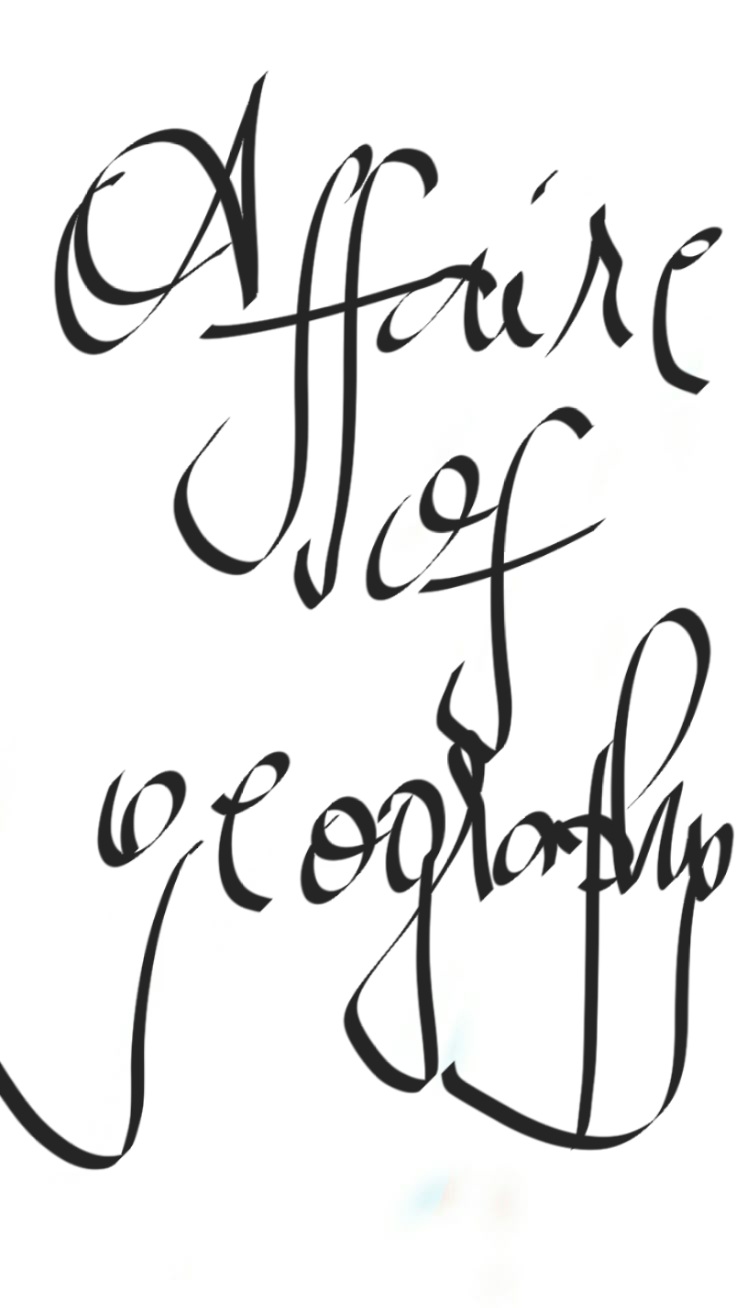 Affaire
of
geography